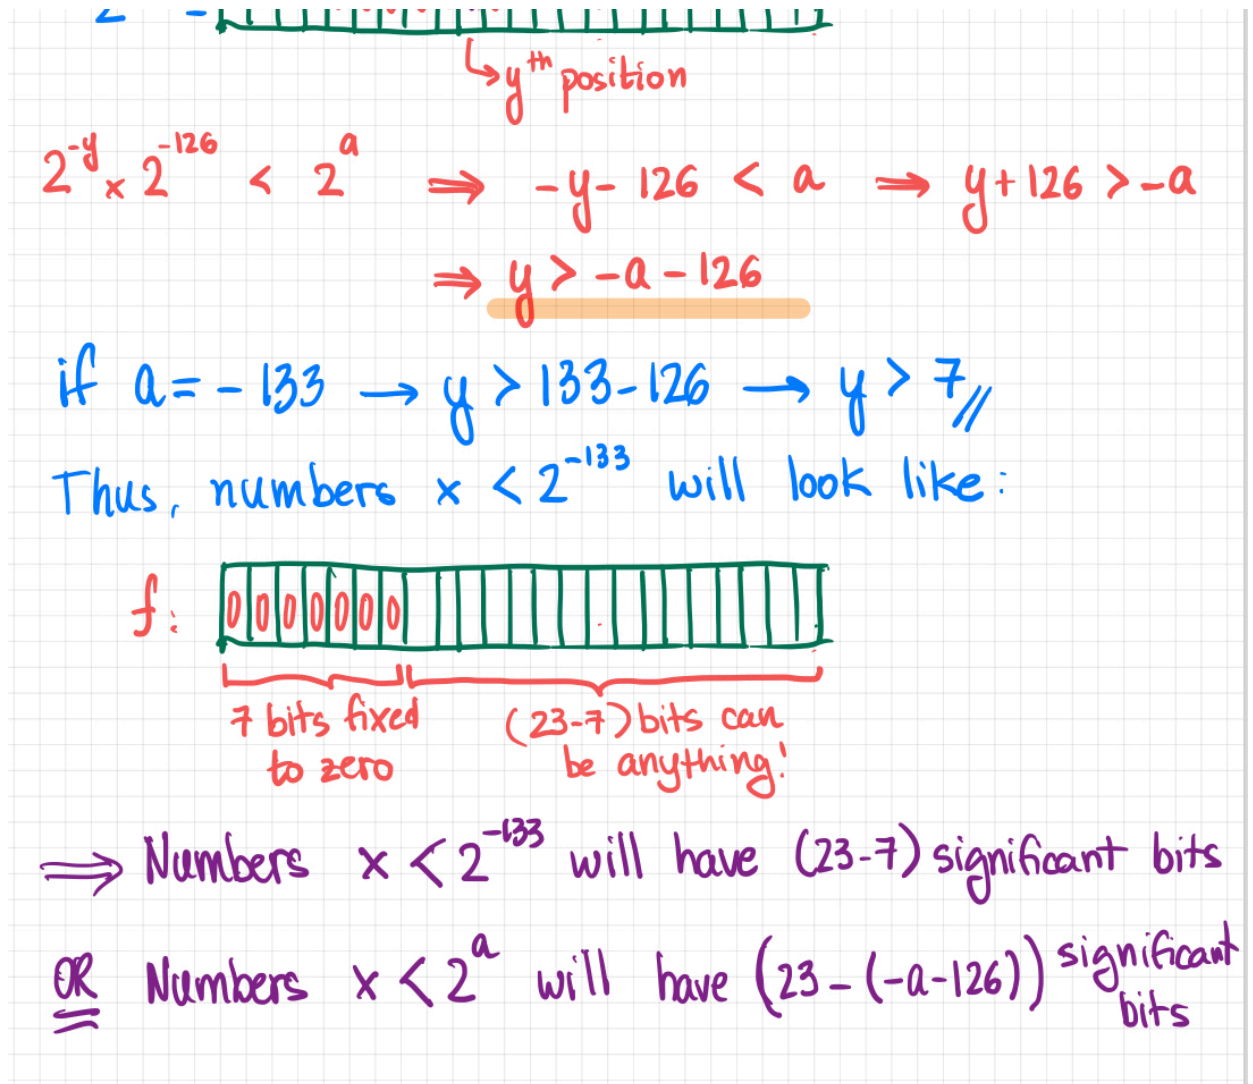 2 =
↳ yᵗʰ position
2^{-y} × 2^{-126} < 2^{a} ⟹ -y - 126 < a ⟹ y + 126 > -a
⟹ y > -a - 126
if a = -133 → y > 133-126 → y > 7 //
Thus, numbers x < 2^{-133} will look like:
f: 0 0 0 0 0 0 0
7 bits fixed
to zero
(23-7) bits can
be anything!
⟹ Numbers x < 2^{-133} will have (23-7) significant bits
OR Numbers x < 2^{a} will have (23 - (-a-126)) significant
bits